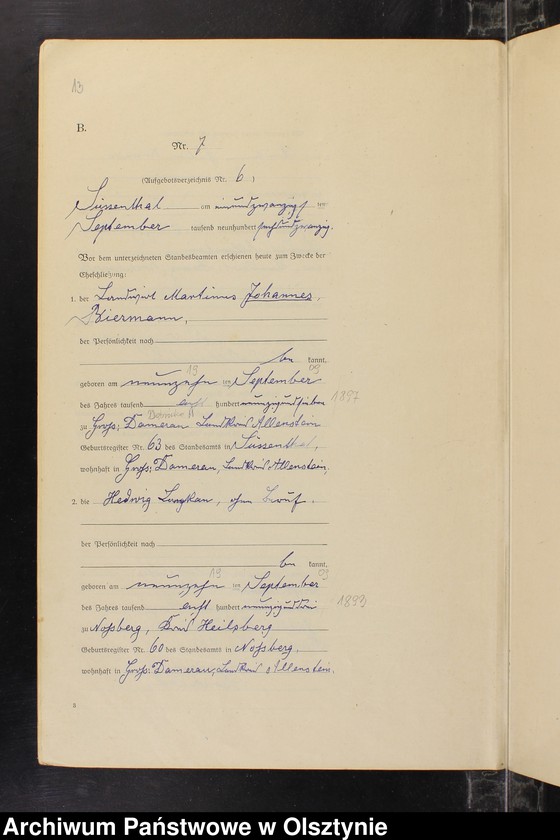 13
B.
Nr. 7
(Aufgebotsverzeichnis Nr. 6)
Süssenthal am einundzwanzigsten
September tausend neunhundert sechsundzwanzig.
Vor dem unterzeichneten Standesbeamten erschienen heute zum Zwecke der
Eheschließung:
1. der Landwirt Martinus Johannes
Biermann,
der Persönlichkeit nach
be kannt,
19 09
geboren am neunzehn ten September
des Jahres tausend acht hundert neunzigundsieben 1897
zu Groß: Damerau Landkreis Allenstein
Geburtsregister Nr. 63 des Standesamts in Süssenthal,
wohnhaft in Groß: Damerau, Landkreis Allenstein,
2. die Hedwig Langkau, ohne Beruf,
der Persönlichkeit nach
be kannt,
19 09
geboren am neunzehn ten September
des Jahres tausend acht hundert neunzigunddrei 1893
zu Noßberg, Kreis Heilsberg
Geburtsregister Nr. 60 des Standesamts in Noßberg,
wohnhaft in Groß: Damerau, Landkreis Allenstein.
8
Archiwum Państwowe w Olsztynie